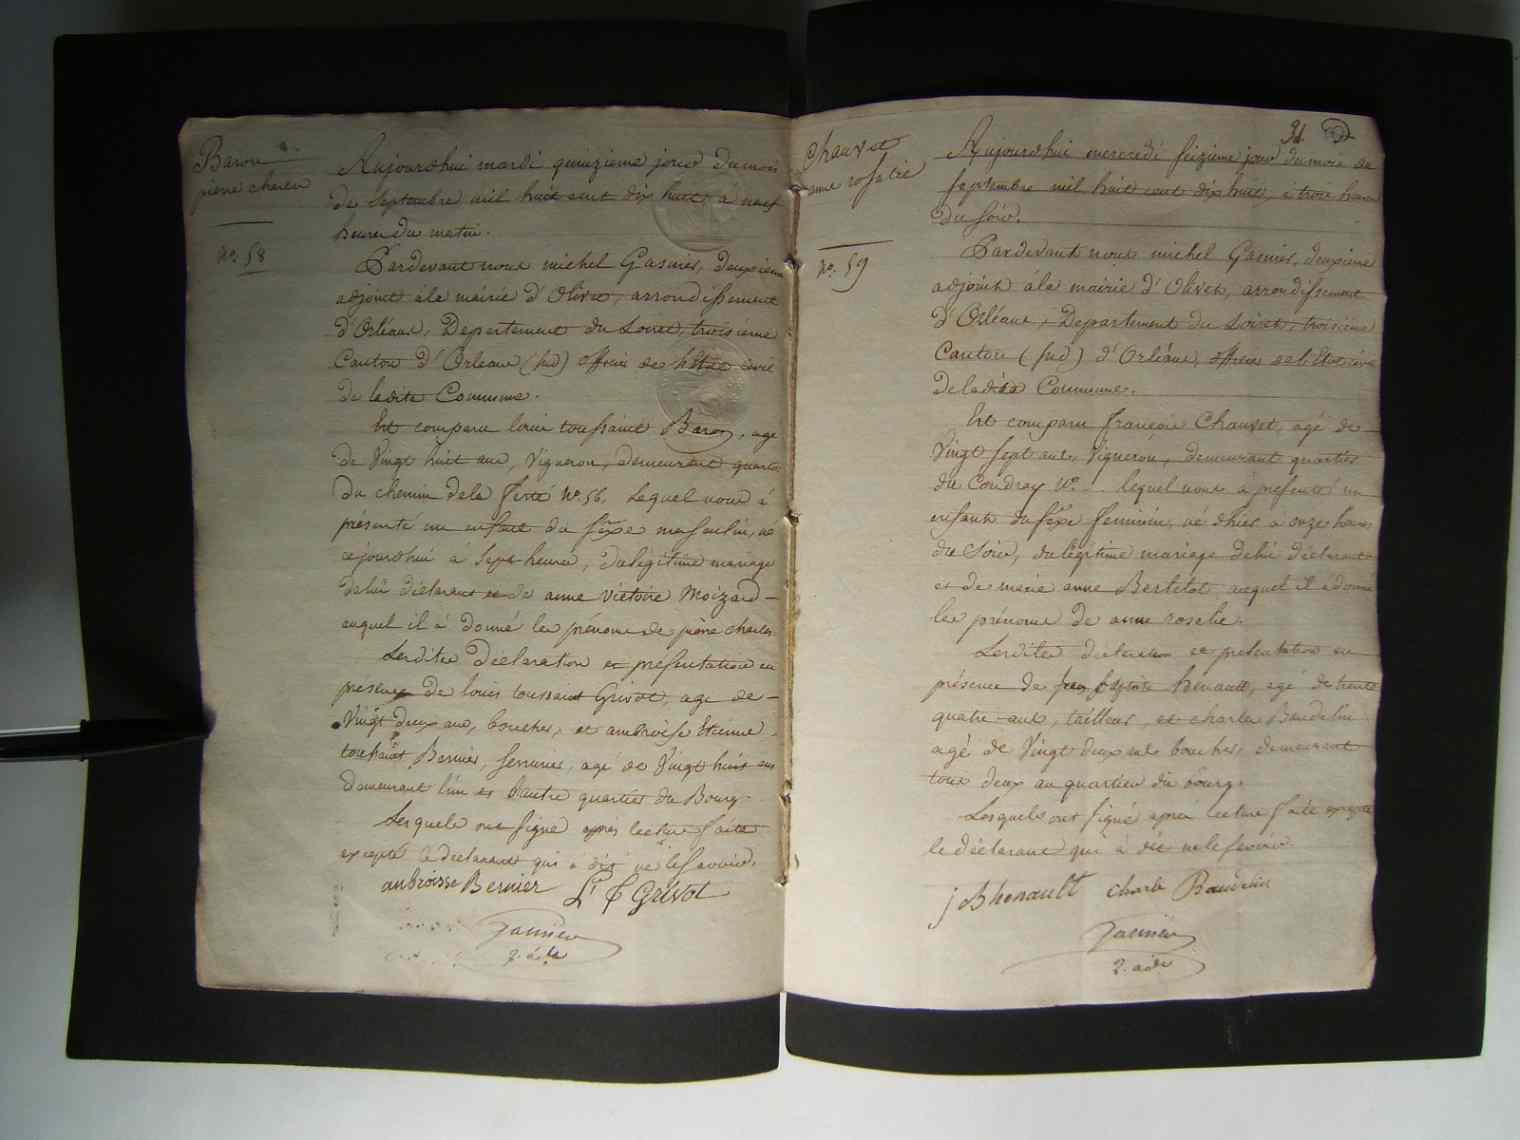 Baron
pierre charles
No. 58
Aujourdhui mardi quinzieme jour du mois
de Septembre mil huit cent dix huit, a neuf
heures du matin.
Pardevant nous michel Gasnier, deuxieme
adjoint à la mairie d'Olivet, arrondissement
d'Orléans, Departement du Loiret, troisieme
Canton d'Orleans (sud) officier de l'Etat civil
de ladite Commune.
Est comparu louis toussaint Baron, agé
de Vingt huit ans, Vigneron, demeurant quartier
du chemin de la ferté No. 56. Lequel nous à
présenté un enfant du sexe masculin, né
cejourdhui à Sept heures, du légitime mariage
de lui déclarant et de anne victoire Moizard
auquel il à donné les prénoms de pierre charles
Lesdites Declaration et presentation en
présence de louis toussaint Grivot, age de
Vingt deux ans, boucher, et ambroise Etienne
toussaint Bernier, serrurier, agé de Vingt huit ans
demeurant l'un et l'autre quartier du Bourg.
Lesquels ont signé après lecture faite
excepté le déclarant qui à dit ne le savoir.
anbroisse Bernier L T Grivot
Gasnier
2. adt
31
Chauvet
anne rosalie
No. 59
Aujourdhui mercredi seizieme jour du mois de
septembre mil huit cent dix huit, à trois heures
du soir.
Pardevant nous michel Gasnier, deuxieme
adjoint à la mairie d'Olivet, arrondissement
d'Orléans, Departement du Loiret, troisieme
Canton (sud) d'Orléans, officier de l'Etat civil
de ladite Commune.
Est comparu françois Chauvet, agé de
Vingt sept ans, Vigneron, demeurant quartier
du Coudray No. lequel nous à presenté un
enfant du sexe feminin, né dhier à onze heures
du Soir, du légitime mariage de lui déclarant
et de marie anne Bertelot auquel il à donné
les prénoms de anne rosalie.
Lesdites declaration et presentation en
présence de jean baptiste henault, agé de trente
quatre ans, tailleur, et charles Baudelin
agé de Vingt deux ans boucher, demeurant
tous deux au quartier du bourg.
Lesquels ont signé après lecture faite excepté
le déclarant qui à dit ne le savoir
j B henault charle Baudelin
Gasnier
2. adt